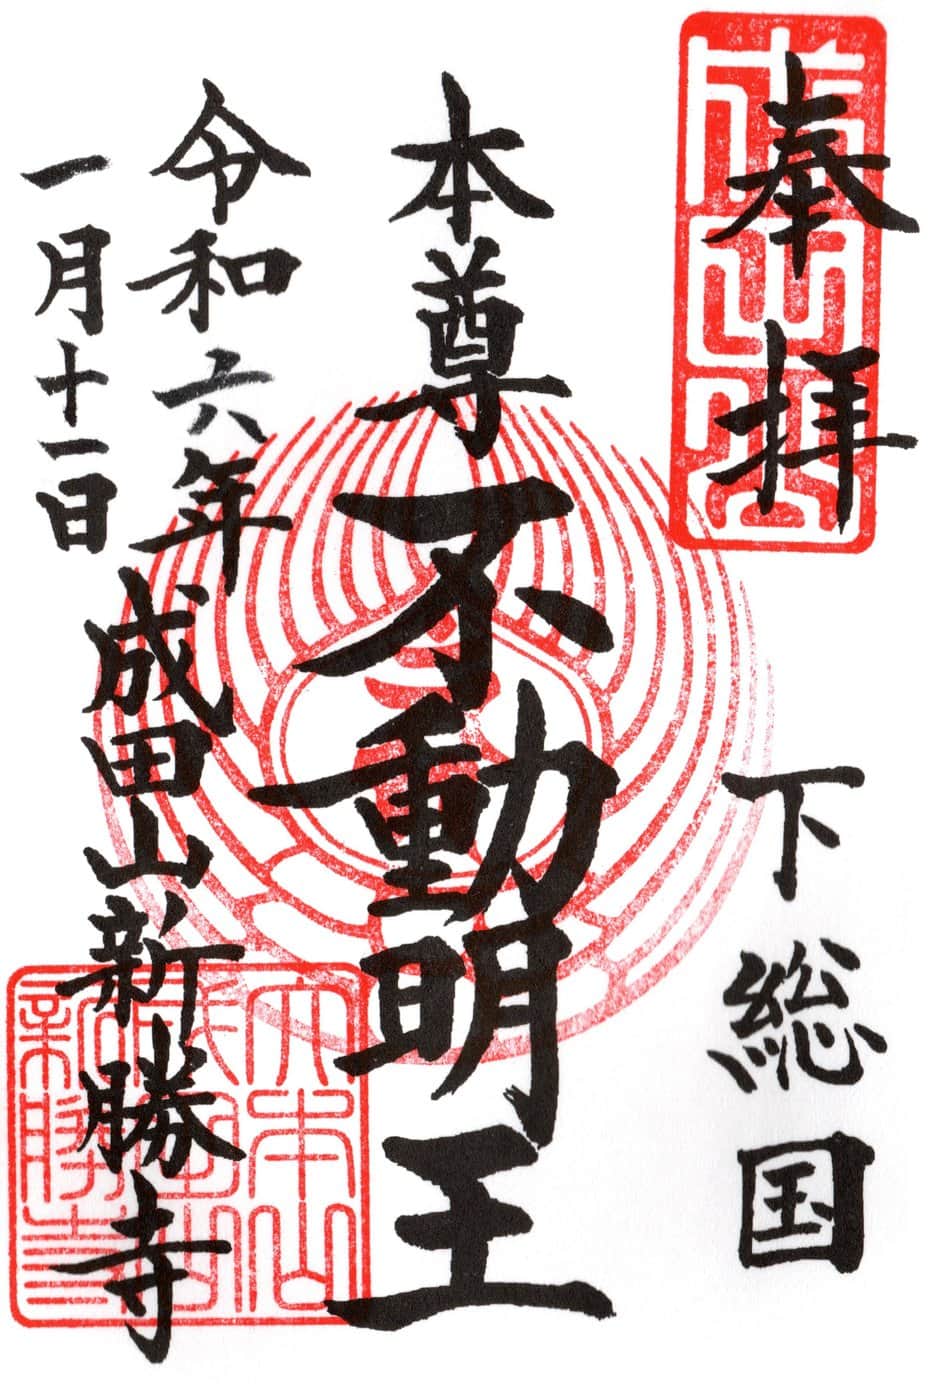 奉拝
下総国
本尊 不動明王
令和六年
一月十一日
成田山新勝寺
成田山
大本山成田山新勝寺